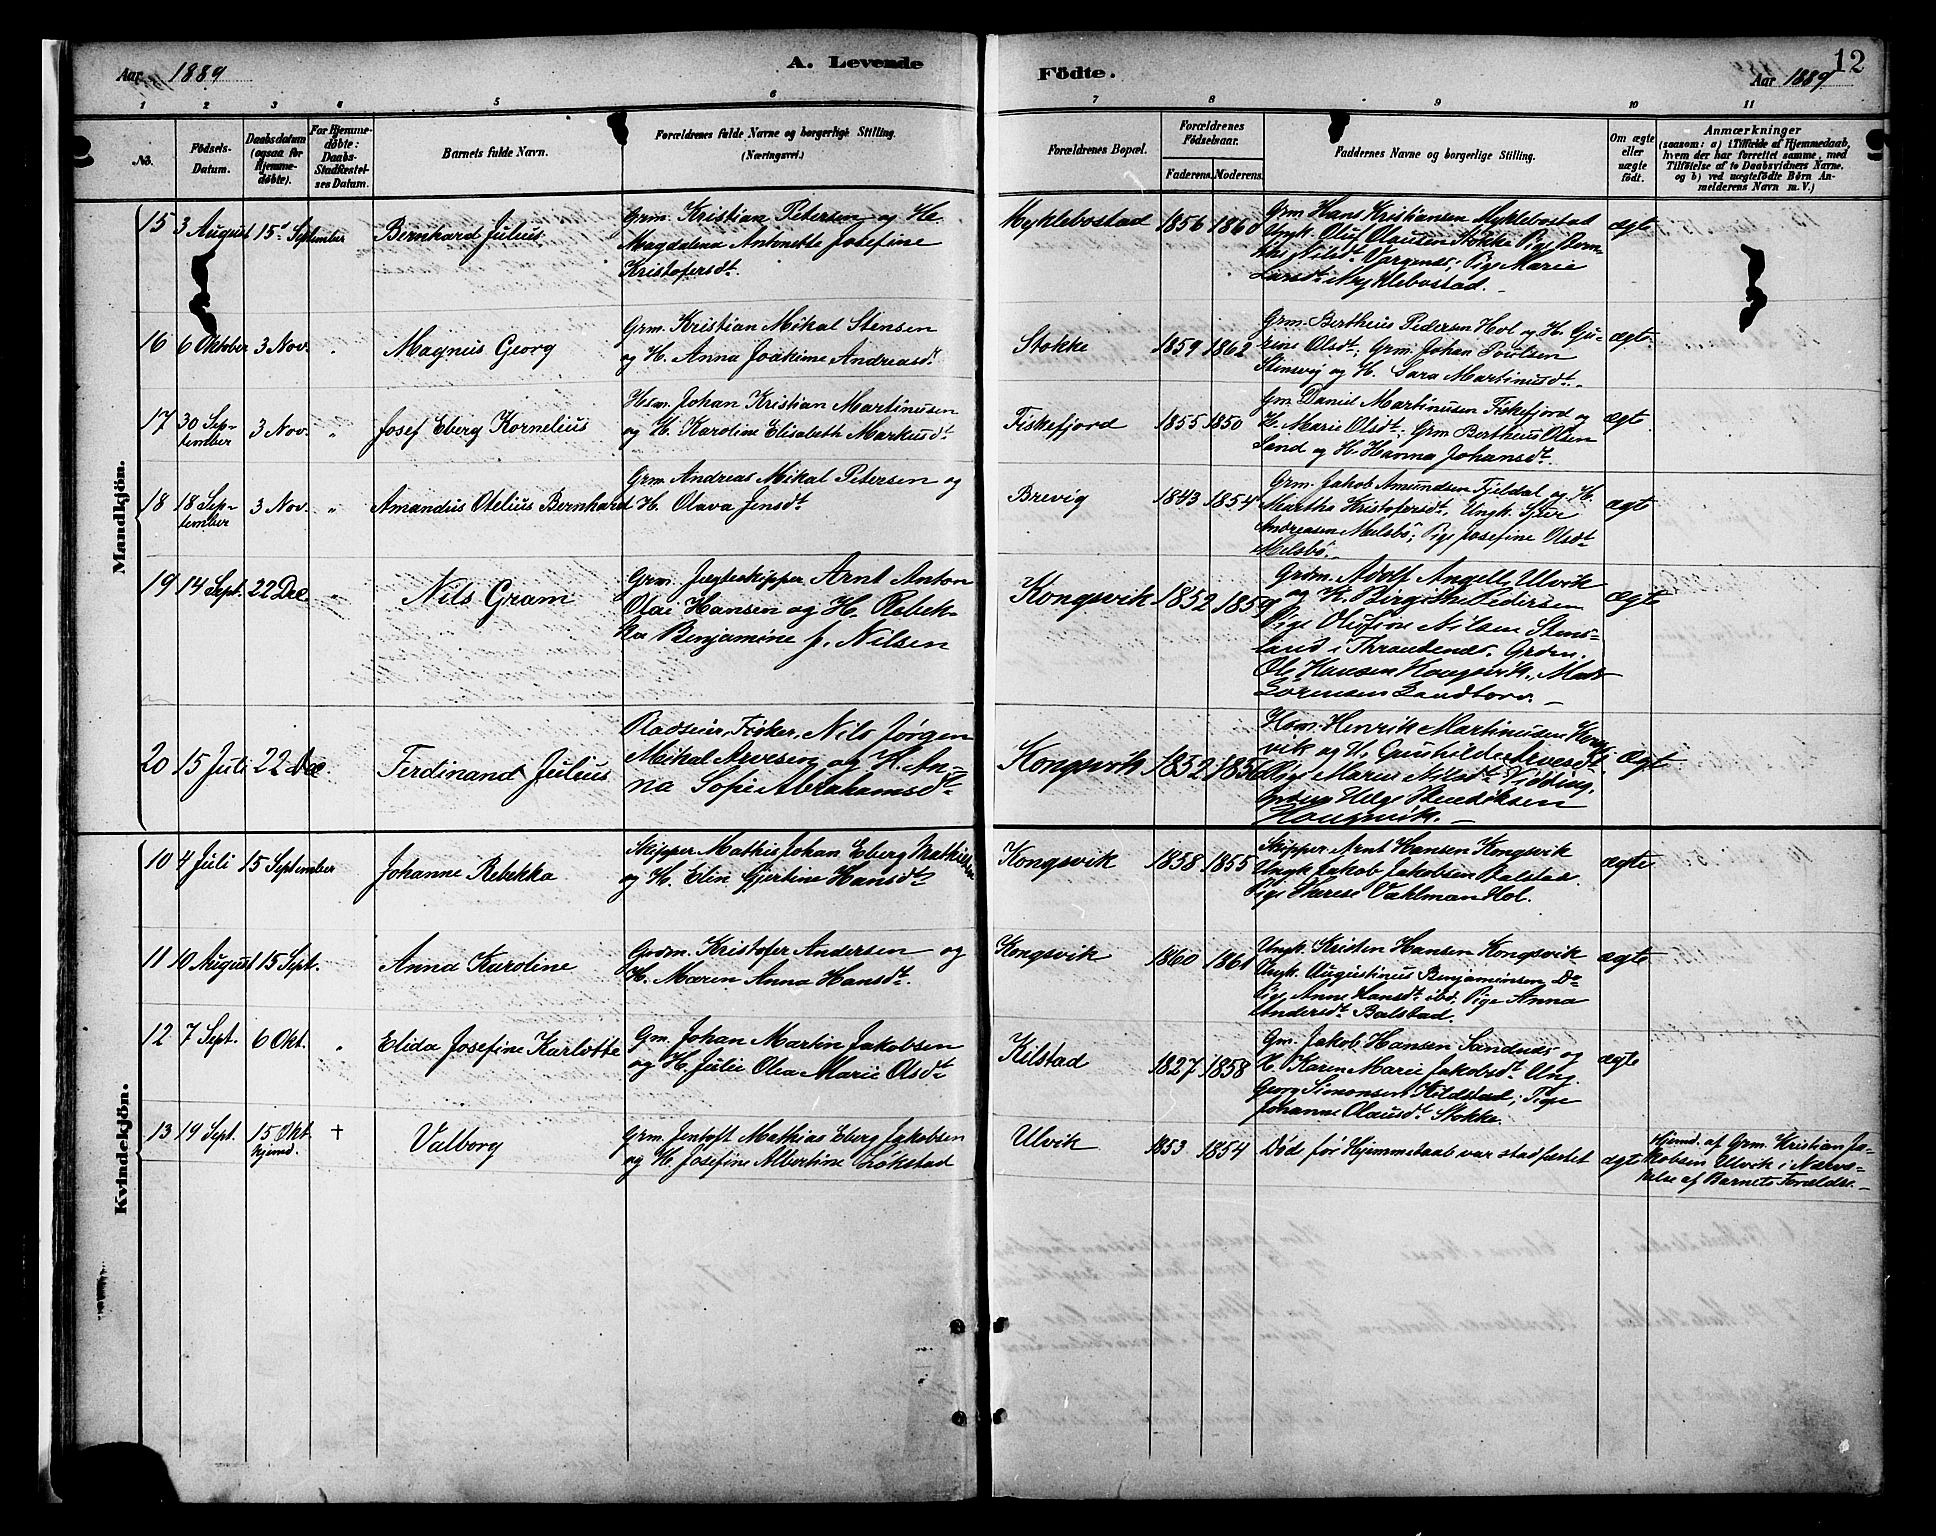 Aar 1889
A. Levende
Födte.
Aar 1889
12
1 2 3 4 5 6 7 8 9 10 11
No.
Födsels-
Datum.
Daabsdatum
(ogsaa for
Hjemme-
døbte).
For Hjemme-
døbte:
Daabs-
Stadfæstel-
ses Datum.
Barnets fulde Navn.
Forældrenes fulde Navne og borgerlige Stilling.
(Næringsvei.)
Forældrenes Bopæl.
Forældrenes
Födselsaar.
Faderens. Moderens.
Faddernes Navne og borgerlige Stilling.
Om ægte
eller
uægte
født.
Anmærkninger
(saasom: a) i Tilfælde af Hjemmedaab,
hvem der har forrettet samme, med
Tilføielse af to Daabsvidners Navne,
og b) ved uægtefødte Børn An-
melderens Navn m. V.)
Mandkjön.
15 3 August 15 September Bernhard Julius
Grm. Kristian Petersen og H.
Magdalena Antonette Josefine
Kristofersdt.
Myklebostad 1856 1860
Grm Hans Kristiansen Myklebostad
Ungk. Oluf Olausen Stokke Pige
Nilsdt. Vargenes; Pige Marie
Larsdt. Myklebostad.
ægte
16 6 Oktober 3 Nov. " Magnus Georg
Grm. Kristian Mikal Stensen
og H. Anna Joakime Andreasdt.
Stokke 1859 1862
Grm. Bertheus Pedersen Hol og H. Gu-
rine Olsdt; Grm. Johan Poulsen
Stensvej og H. Sara Martinusdt.
ægte
17 30 Sep-
tember 3 Nov. " Josef Eberg Kornelius
Hsm. Johan Kristian Martinusen
og H. Karoline Elisabeth Markusdt.
Fiskefjord 1855 1850
Gm. Daniel Martinusen Fiskefjord og
H. Marie Olsdt; Grm Bertheus Olsen
Sand og H. Hanna Johansdt.
ægte
18 18 Sep-
tember 3 Nov. " Amandus Otelius Bernhard
Grm. Andreas Mikal Petersen og
H. Olava Jensdt
Brevig 1843 1854
Grm. Jakob Amundsen Fjeldal og H.
Martha Kristofersdt, Ungk. Sjur
Andreasen Melsbö; Pige Josefine Olsdt
Melsbö.
ægte
19 14 Sept. 22 Dec " Nils Gram
Grm. Jægteskipper Arnt Anton
Olai Hansen og H. Rebek-
ka Benjamine f. Nilsen
Kongsvik 1852 1859
Grdm. Adolf Angell Ulvik
og H. Birgithe Pedersen
Pige Olufine Nilsen Stens-
land i Throndenes. Grdm.
Ole Hansen Kongsvik, Mads
Sörensen Sandtorv.
ægte
20 15 Juli 22 Dec. Ferdinand Julius
Fisker, Nils Jørgen
Mikal Arvesen og H. An-
na Sofie Abrahamsdt.
Kongsvik 1852 1856
Hsm. Henrik Martinusen Kongs-
vik og H. Gunhilde Arvesdt.
Pige Marie Nilsdt.
Helge Bendiksen
Kongsvik.
ægte
Kvindekjön.
10 4 Juli 15 September Johanne Rebekka
Skipper Mathis Johan Eberg Mathisen
og H. Elin Gjertine Hansdt
Kongsvik 1858 1855
Skipper Arnt Hansen Kongsvik
Ungk Jakob Jakobsen Balstad.
Pige Varese Vahlman Hol.
ægte
11 10 August 15 Sept. Anna Karoline
Grdm. Kristofer Andersen og
H. Maren Anna Hansdt.
Kongsvik 1860 1861
Ungk. Kristen Hansen Kongsvik
Ungk. Augustinus Benjaminsen Do
Pige Anne Hansdt. ibd. Pige Anna
Andersdt Balstad.
ægte
12 7 Sept. 6 Okt. " Elida Josefine Karlotte
Gm. Johan Martin Jakobsen
og H. Julie Olea Marie Olsdt
Kilstad 1827 1858
Gm. Jakob Hansen Sandnes og
H. Karen Marie Jakobsdt. Ung.
Georg Simonsen Kildstad; Pige
Johanne Olausdt. Stokke.
ægte
13 19 Sept. 15 Okt
hjemd. † Valborg
Grm. Jentoft Mathias Eberg Jakobsen
og H. Josefine Albertine Lökstad
Ulvik 1853 1854 Død før Hjemmedaab var stadfæstet
ægte
Hjemd. af Grm. Kristian Ja-
kobsen Ulvik i Nærvæ-
relse af Barnets Forældre.